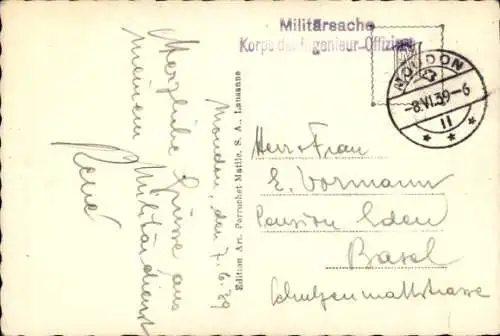 Militärsache
Korps der Ingenieur-Offiziere
MOUDON
-8.VI.39-6
11
Moudon, den 7.6.39
Herzliche Grüsse aus
meinem Militärdienst
René
Edition Art. Perrochet Matile, S. A., Lausanne
Herr + Frau
E. Vormann
Pension Eden
Basel
Schützenmattstrasse